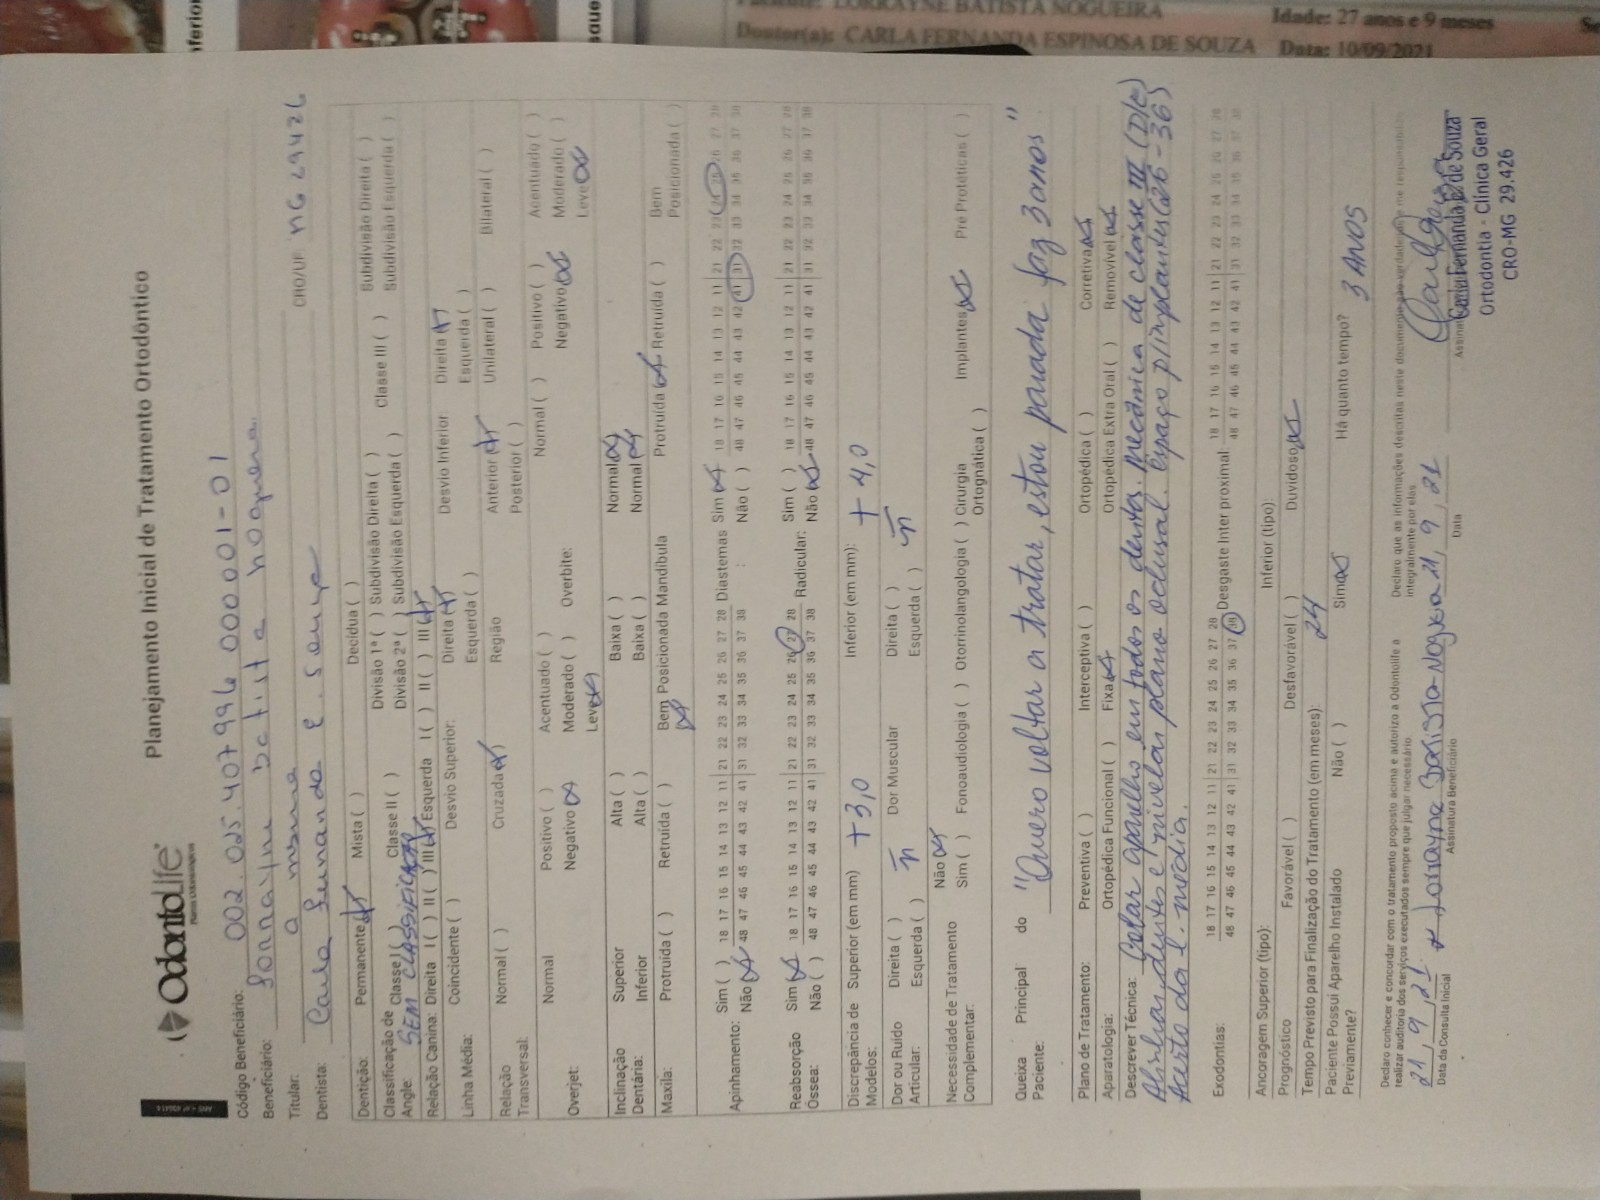 PACIENTE: LORRAYNE BATISTA NOGUEIRA Idade: 27 anos e 9 meses
Doutor(a): CARLA FERNANDA ESPINOSA DE SOUZA Data: 10/09/2021
OdontoLife
Planos Odontológicos
Planejamento Inicial de Tratamento Ortodôntico
Código Beneficiário: 002.025.407996 000001-01
Beneficiário: Lorrayne Batista Nogueira
Titular: a mesma
Dentista: Carla Fernanda E. Souza CRO/UF MG 29426
Dentição: Permanente (x) Mista ( ) Decídua ( )
Classificação de Angle: Classe I ( ) Classe II ( ) Divisão 1ª ( ) Subdivisão Direita ( ) Classe III ( ) Subdivisão Direita ( )
SEM CLASSIFICAÇÃO Divisão 2ª ( ) Subdivisão Esquerda ( ) Subdivisão Esquerda ( )
Relação Canina: Direita I ( ) II ( ) III (x) Esquerda I ( ) II ( ) III (x)
Linha Média: Coincidente ( ) Desvio Superior: Direita (x) Desvio Inferior Direita (x)
Esquerda ( ) Esquerda ( )
Relação Transversal: Normal ( ) Cruzada (x) Região Anterior (x) Unilateral ( ) Bilateral ( )
Posterior ( )
Overjet: Normal Positivo ( ) Acentuado ( ) Overbite: Normal ( ) Positivo ( ) Acentuado ( )
Negativo (x) Moderado ( ) Negativo (x) Moderado ( )
Leve (x) Leve (x)
Inclinação Dentária: Superior Alta ( ) Baixa ( ) Normal (x)
Inferior Alta ( ) Baixa ( ) Normal (x)
Maxila: Protruída ( ) Retruída ( ) Bem Posicionada (x) Mandíbula Protruída (x) Retruída ( ) Bem Posicionada ( )
Apinhamento: Sim ( ) 18 17 16 15 14 13 12 11 | 21 22 23 24 25 26 27 28 Diastemas: Sim (x) 18 17 16 15 14 13 12 11 | 21 22 23 24 25 26 27 28
Não (x) 48 47 46 45 44 43 42 41 | 31 32 33 34 35 36 37 38 Não ( ) 48 47 46 45 44 43 42 41 | 31 32 33 34 35 36 37 38
Reabsorção Óssea: Sim (x) 18 17 16 15 14 13 12 11 | 21 22 23 24 25 26 27 28 Radicular: Sim ( ) 18 17 16 15 14 13 12 11 | 21 22 23 24 25 26 27 28
Não ( ) 48 47 46 45 44 43 42 41 | 31 32 33 34 35 36 37 38 Não (x) 48 47 46 45 44 43 42 41 | 31 32 33 34 35 36 37 38
Discrepância de Modelos: Superior (em mm) +3,0 Inferior (em mm): +4,0
Dor ou Ruído Articular: Direita ( ) Dor Muscular Direita ( )
Esquerda ( ) Esquerda ( )
Necessidade de Tratamento Complementar: Não (x)
Sim ( ) Fonoaudiologia ( ) Otorrinolangologia ( ) Cirurgia Ortognática ( ) Implantes (x) Pré Protéticas ( )
Queixa Principal do Paciente: "Quero voltar a tratar, estou parada faz 3 anos"
Plano de Tratamento: Preventiva ( ) Interceptiva ( ) Ortopédica ( ) Corretiva (x)
Aparatologia: Ortopédica Funcional ( ) Fixa (x) Ortopédica Extra Oral ( ) Removível (x)
Descrever Técnica: Colar aparelho em todos os dentes. Mecânica de classe III (D/E)
Alinhar dentes e nivelar plano oclusal. Espaço p/ implantes (26-36)
Acerto da l. média.
Exodontias: 18 17 16 15 14 13 12 11 | 21 22 23 24 25 26 27 28 Desgaste Inter proximal: 18 17 16 15 14 13 12 11 | 21 22 23 24 25 26 27 28
48 47 46 45 44 43 42 41 | 31 32 33 34 35 36 37 38 48 47 46 45 44 43 42 41 | 31 32 33 34 35 36 37 38
Ancoragem Superior (tipo): Inferior (tipo):
Prognóstico Favorável ( ) Desfavorável ( ) Duvidoso (x)
Tempo Previsto para Finalização do Tratamento (em meses) 24
Paciente Possui Aparelho Instalado Previamente? Não ( ) Sim (x) Há quanto tempo? 3 ANOS
Declaro conhecer e concordar com o tratamento proposto acima e autorizo a Odontolife a realizar auditoria dos serviços executados sempre que julgar necessário
Declaro que as informações descritas neste documento são verdadeiras e me responsabilizo integralmente por elas
21, 9, 21 x Lorrayne Batista Nogueira 21, 9, 21
Data da Consulta Inicial Assinatura Beneficiário Data
Carla Fernanda E. de Souza
Ortodontia - Clínica Geral
CRO-MG 29.426